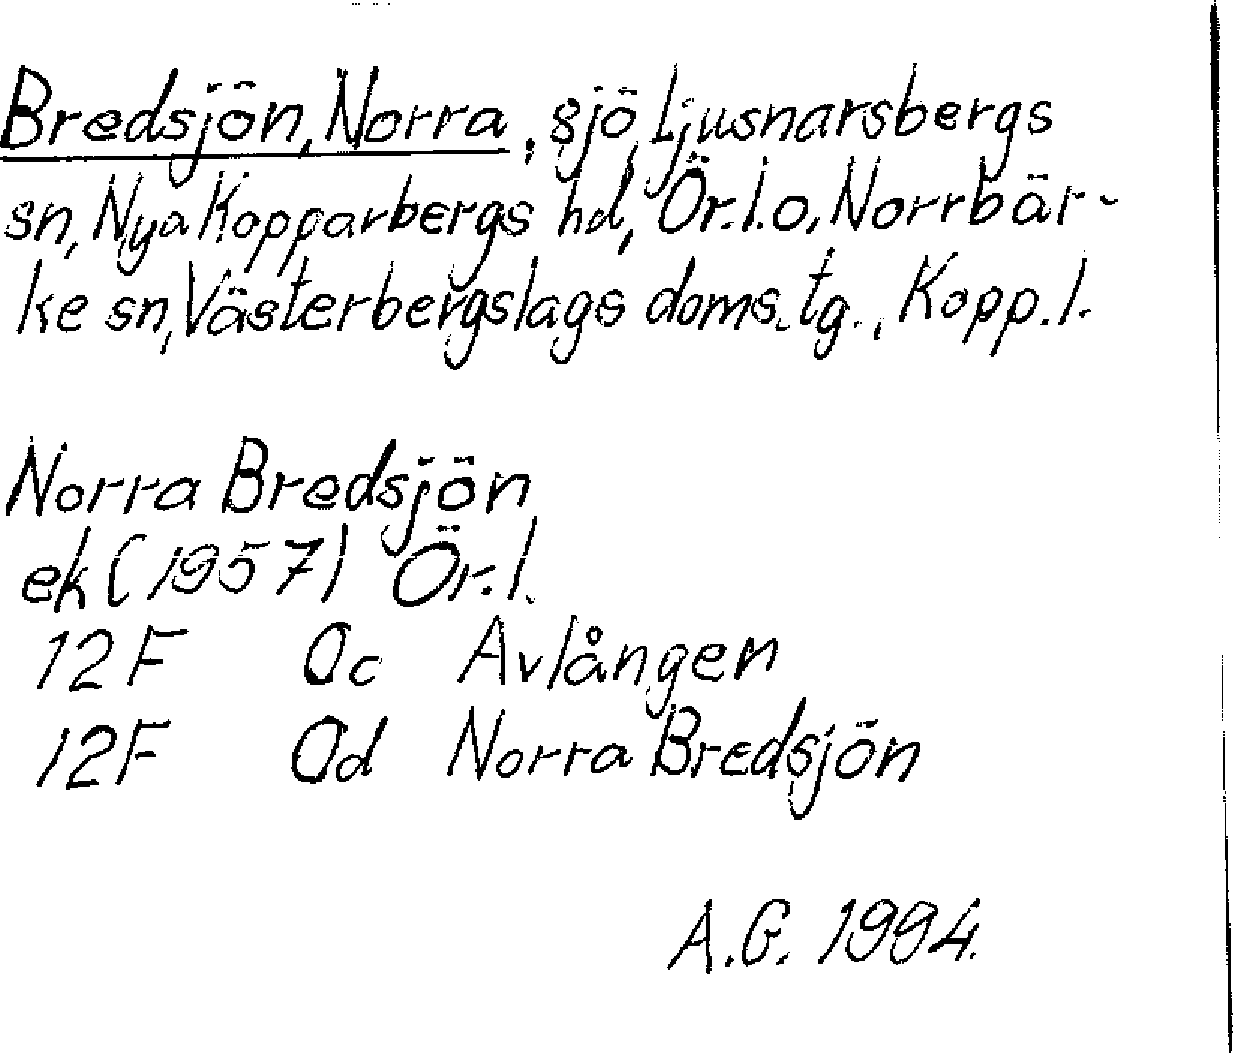 Bredsjön, Norra, sjö, Ljusnarsbergs
sn, Nya Kopparbergs hd, Ör.l.o, Norrbär-
ke sn, Västerbergslags doms.tg., Kopp.l.
Norra Bredsjön
ek (1957) Ör.l.
12F 0c Avlången
12F 0d Norra Bredsjön
A.G. 1994.